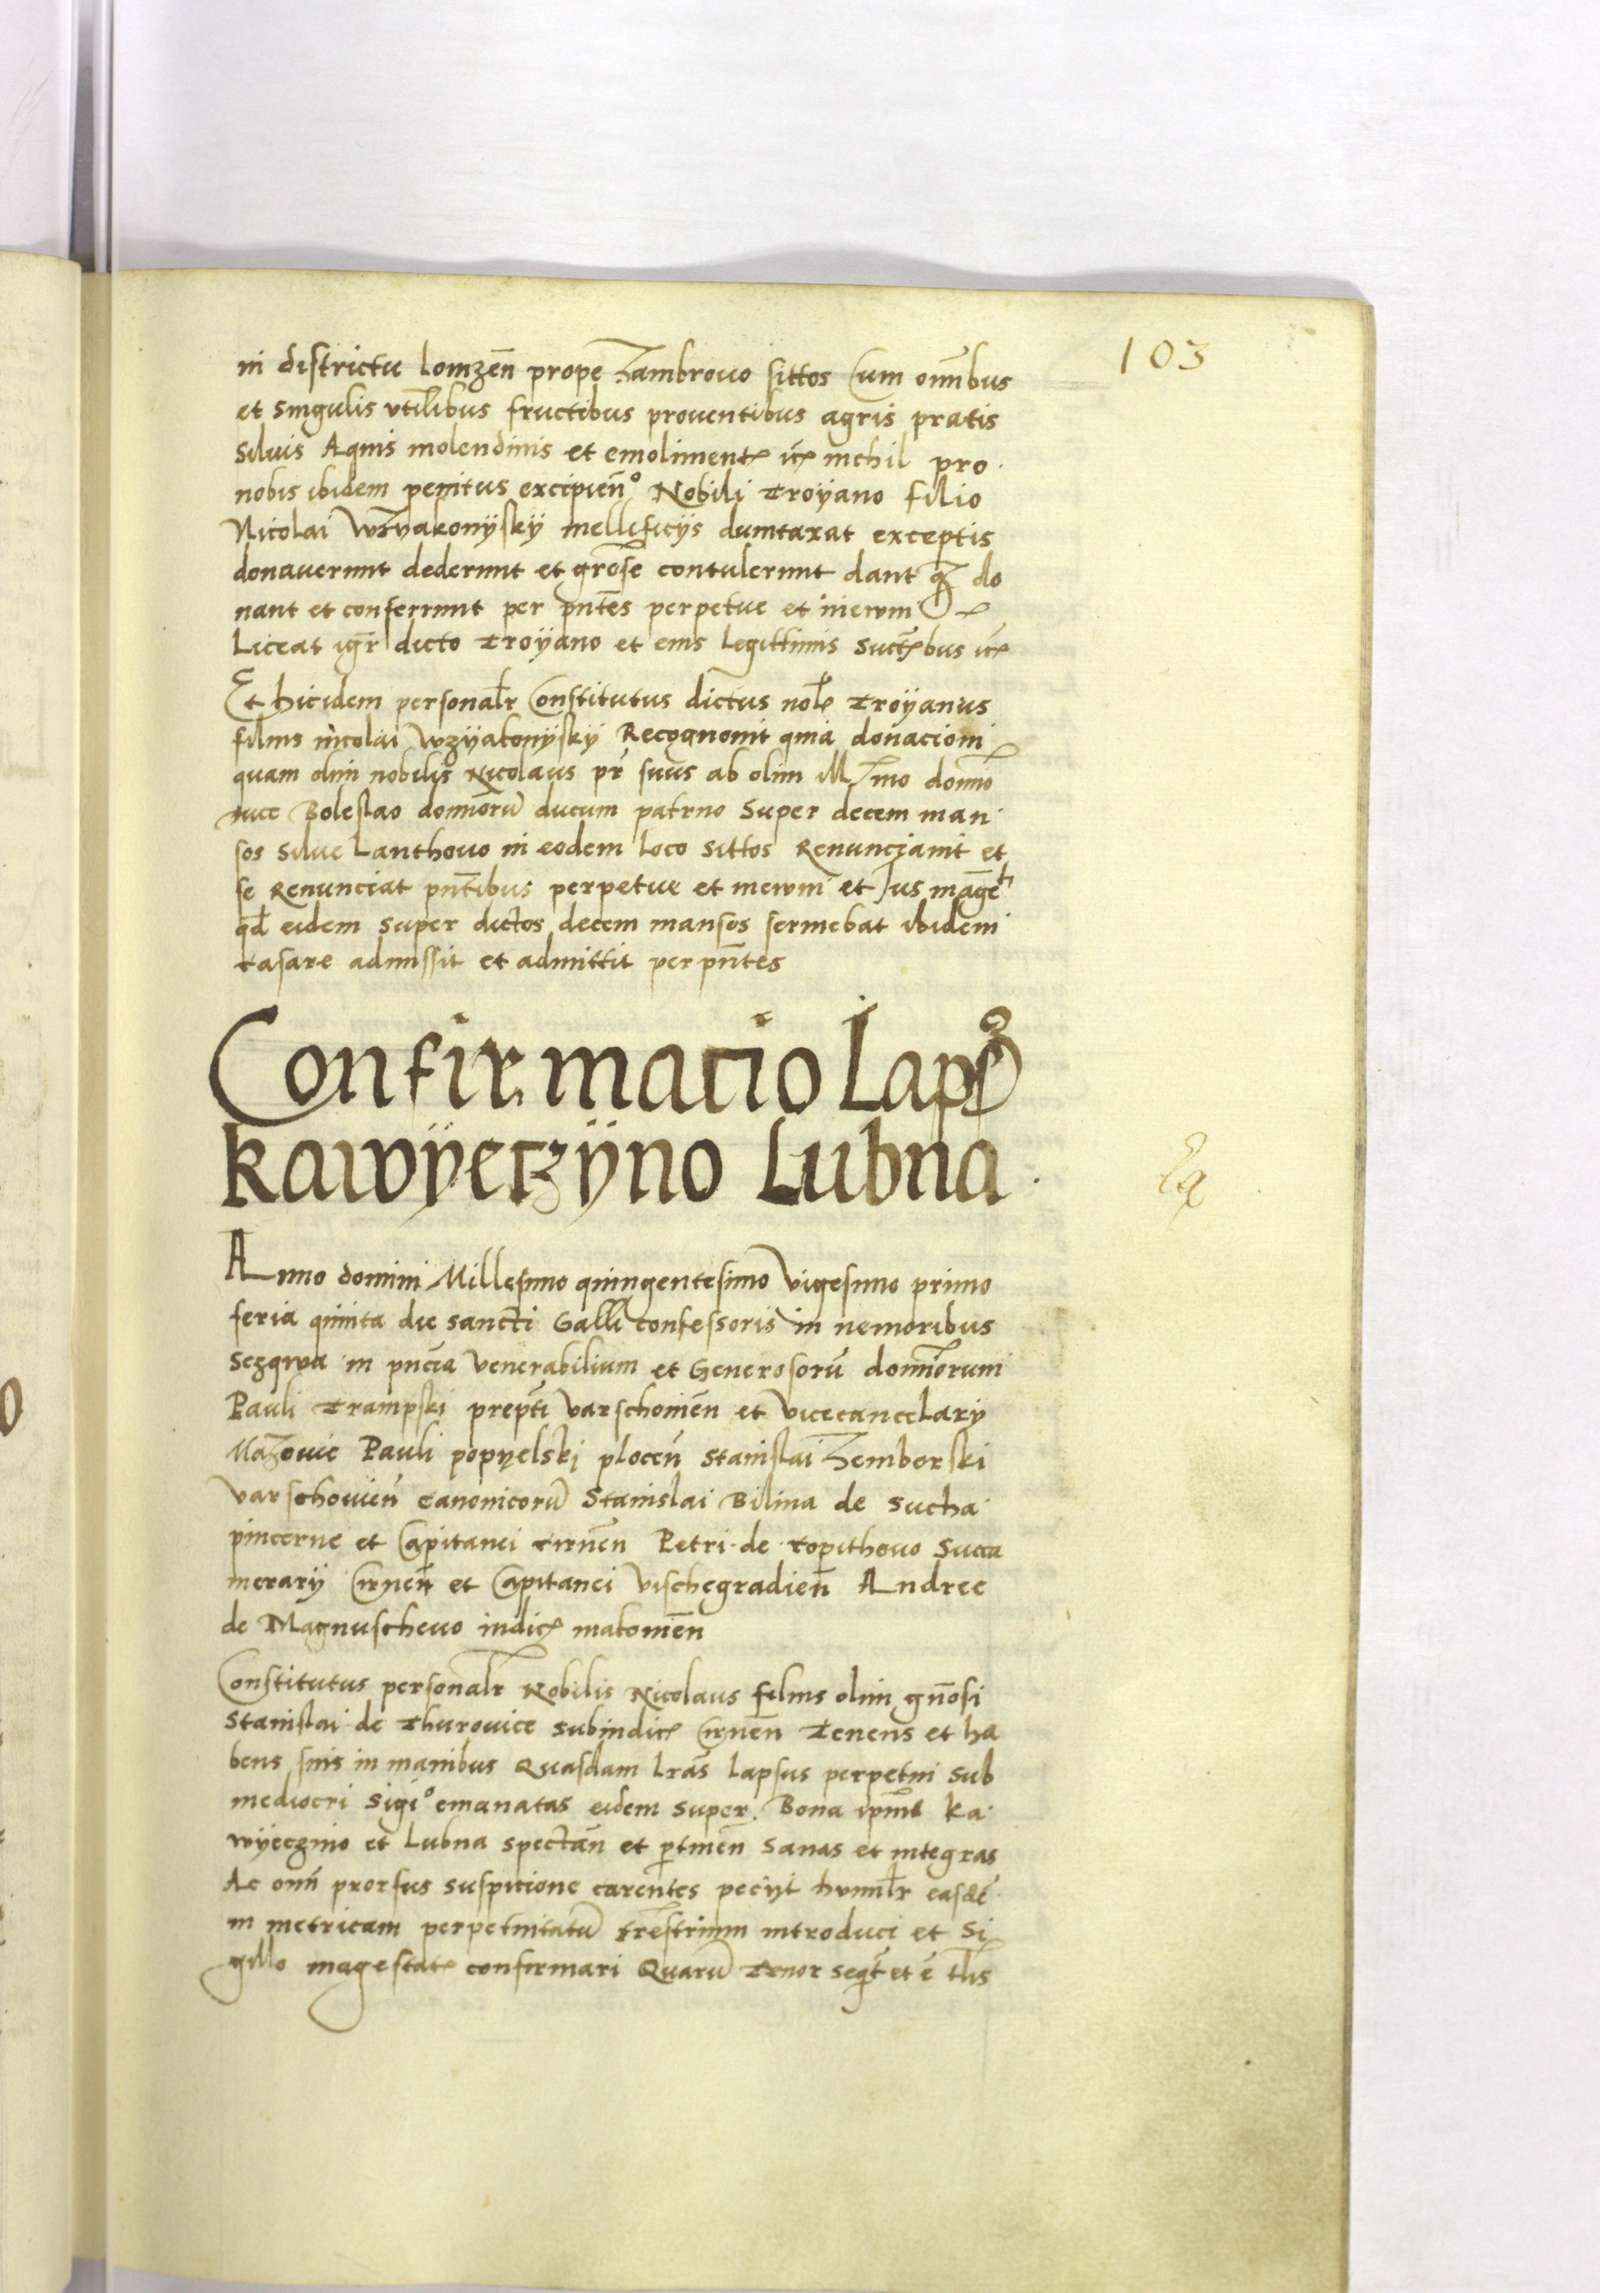 103
in districtu Lomzen̄ prope Zambrovo sittos Cum om̄ibus
et singulis vtilibus fructibus proventibus agris pratis
siluis Aquis molendinis et emolimentꝭ nichil pro
nobis ibidem penitus excipien̄° Nobili Troÿano filio
Nicolai Wzÿakonÿskÿ mellificijs dumtaxat exceptis
donauerunt dederunt et grōse contulerunt dant do
nant et conferrunt per pn̄tes perpetue et
Liceat igr̄ dicto Troÿano et eius legittimis
Et hicidem personalr̄ Constitutus dictus nobl̄e Troÿanus
filius nicolai Wzÿakonÿskÿ Recognouit quia donacioni
quam olim nobilis Nicolaus pr̄ suus ab olim domino
duce Boleslao dominorū ducum patruo super decem man
sos silue Lanthovo in eodem loco sittos Renunciauit et
se Renunciat pn̄tibus perpetue et et Jus
qd̄ eidem super dictos decem mansos seruiebat ibidem
casare admissit et admittit per pn̄tes
Confirmacio Laps9
kawÿeczÿno Lubna
Anno domini Millesimo quingentesimo vigesimo primo
feria quinta die sancti Galli confessoris in nemoribus
Sezqwa in pn̄cia venerabilium et Generosorū dominorum
Pauli Trampski prepti varschouien̄ et vicecancelarÿ
Mazouie Pauli popyelski plocen̄ Stanislai Zemborski
varschouien̄ canonicorū Stanislai Bilina de sucha
pincerne et Capitanei cirnen̄ Petri de copithovo Succa
merarÿ Cirnen̄ et Capitanei vischegradien̄ Andree
de Magnuschevo iudicꝭ makouien̄
Constitutus personalr̄ Nobilis Nicolaus filius olim gn̄osi
Stanislai de Thurovice subiudicꝭ Cirnen̄ Tenens et ha
bens suis in manibus Quasdam lr̄as lapsus perpetui sub
mediocri sigi° emanatas eidem super Bona ka
wÿeczino et Lubna spectan̄ et ꝑtinen̄ sanas et integras
Ac omn̄ prorsus suspicione carentes peciÿt humilr̄ easdē
in metricam perpetuitatū trēstrium introduci et Si
gillo magestatꝭ confirmari Quarū Tenor seqt̄ et ē tlīs